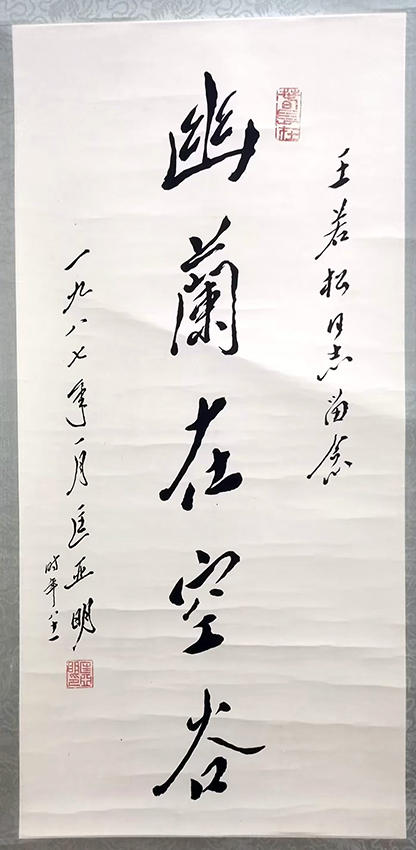 王若松同志留念
幽蘭在空谷
一九八七年一月匡亚明
时年八十一
匡亚明印